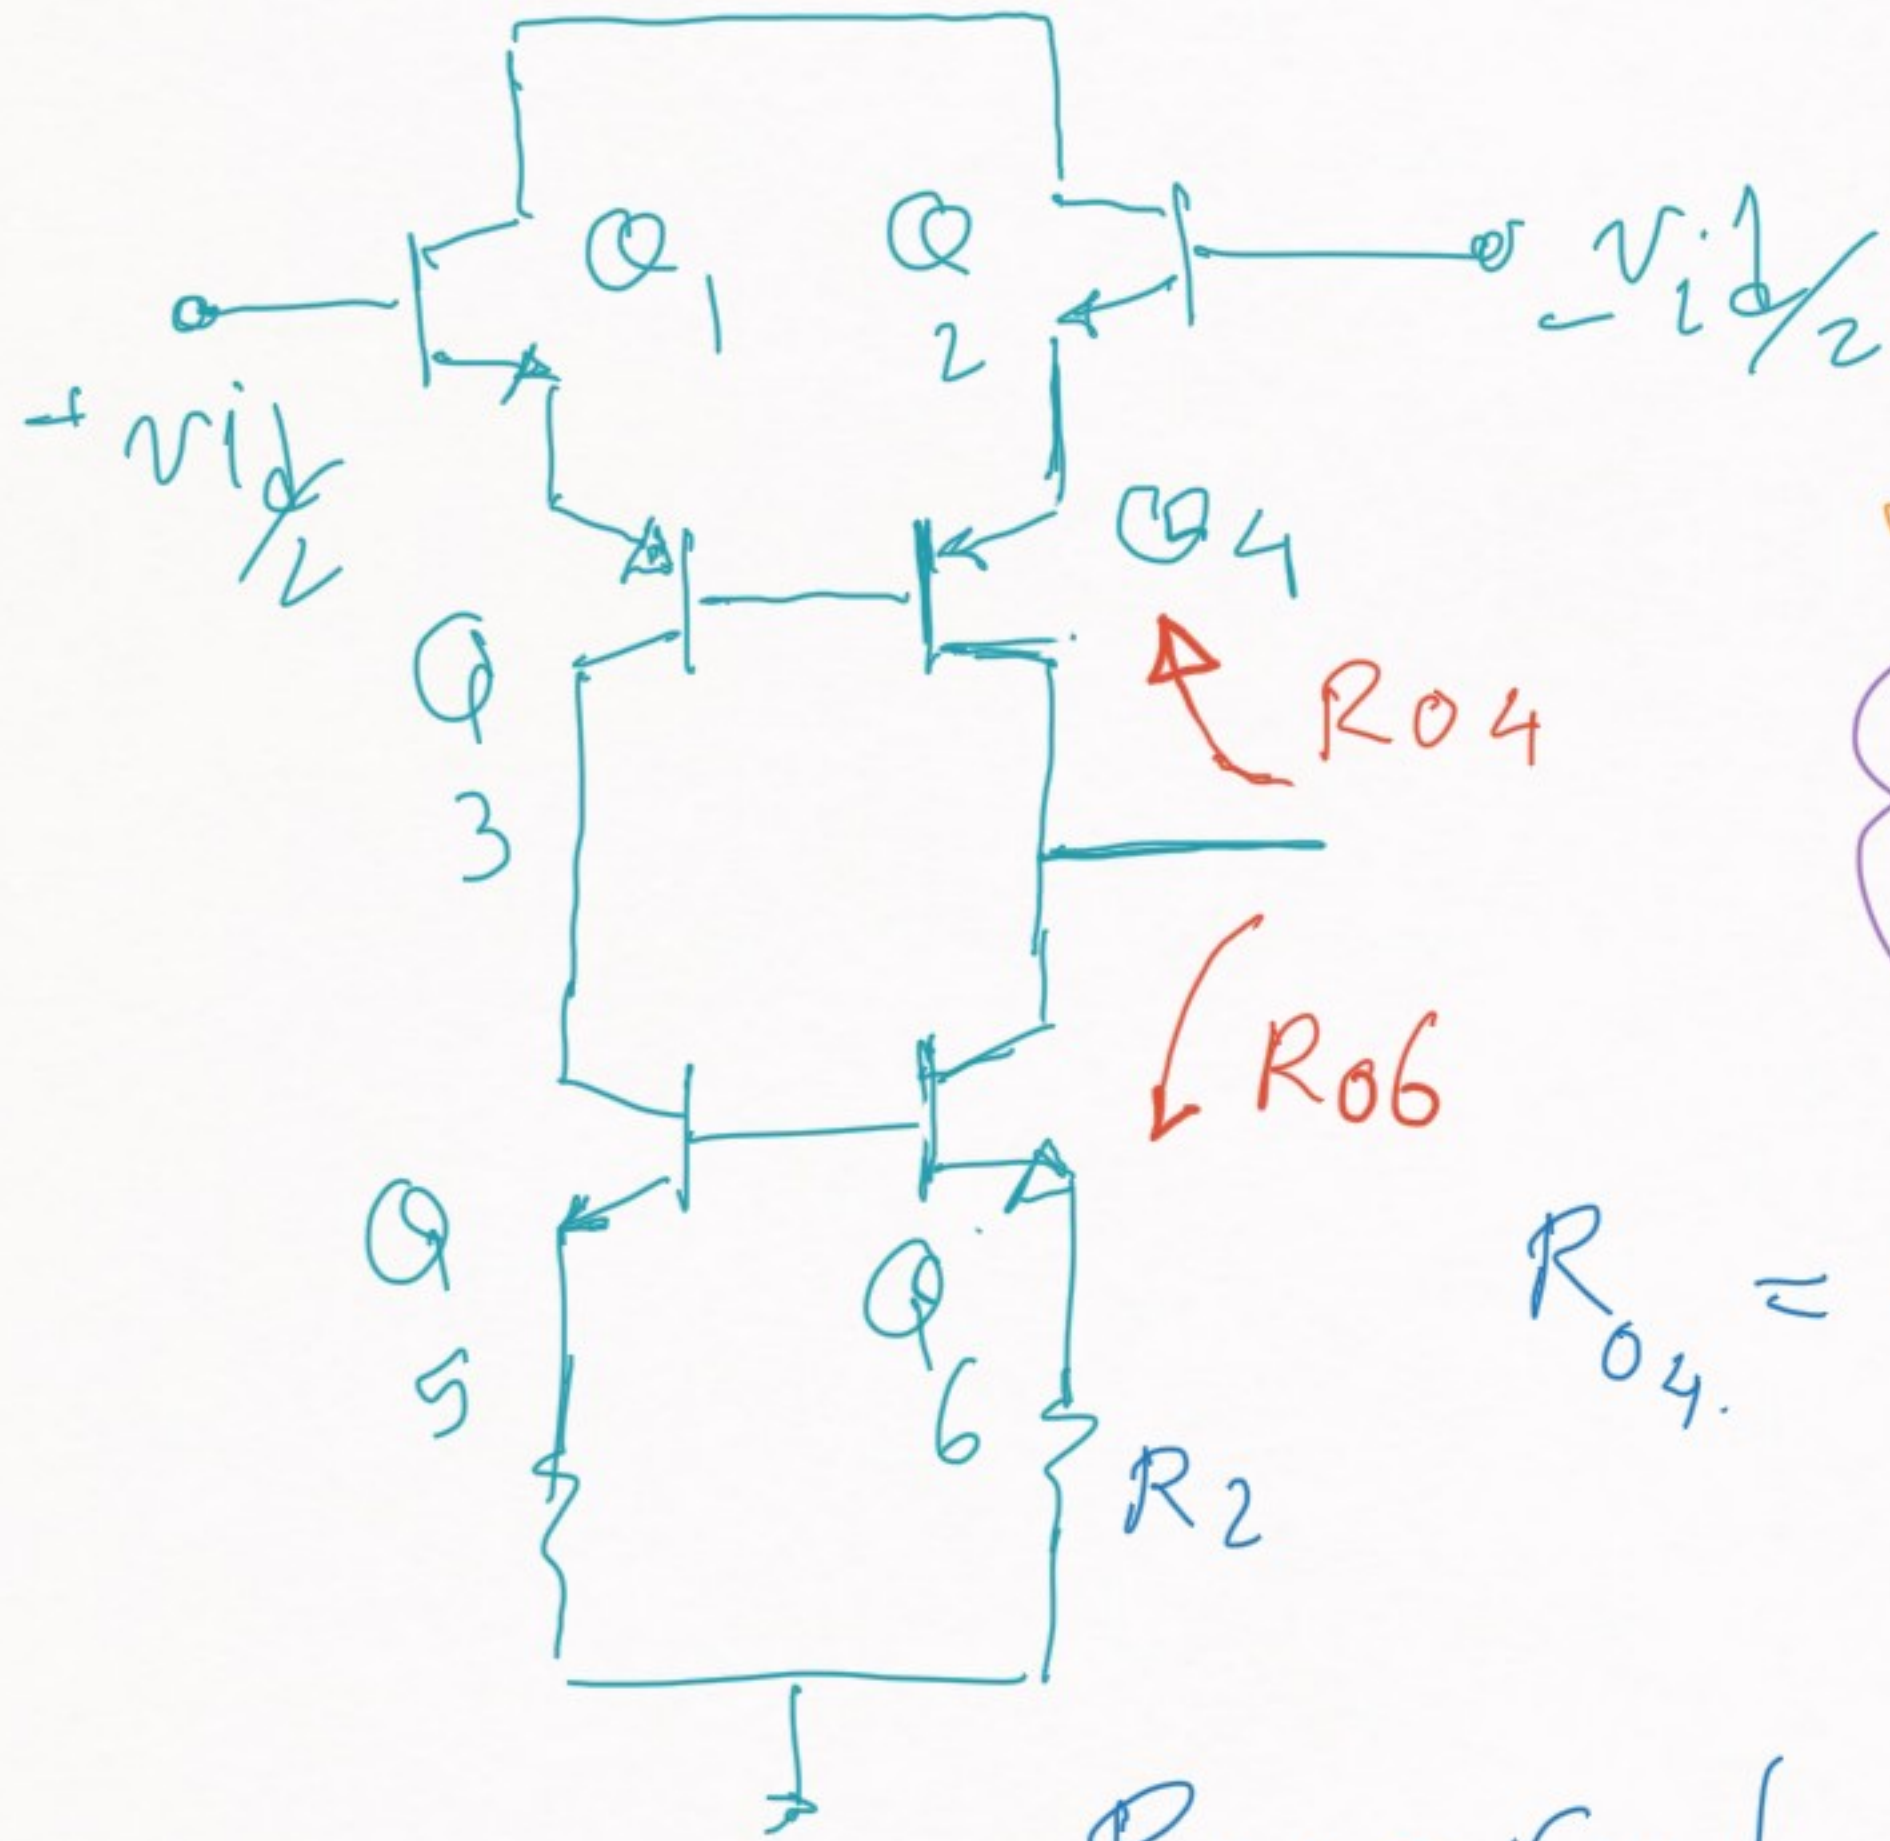 Q1
Q2
+vid/2
-vid/2
Q3
Q4
Ro4
Ro6
Q5
Q6
R2
Ro4. =